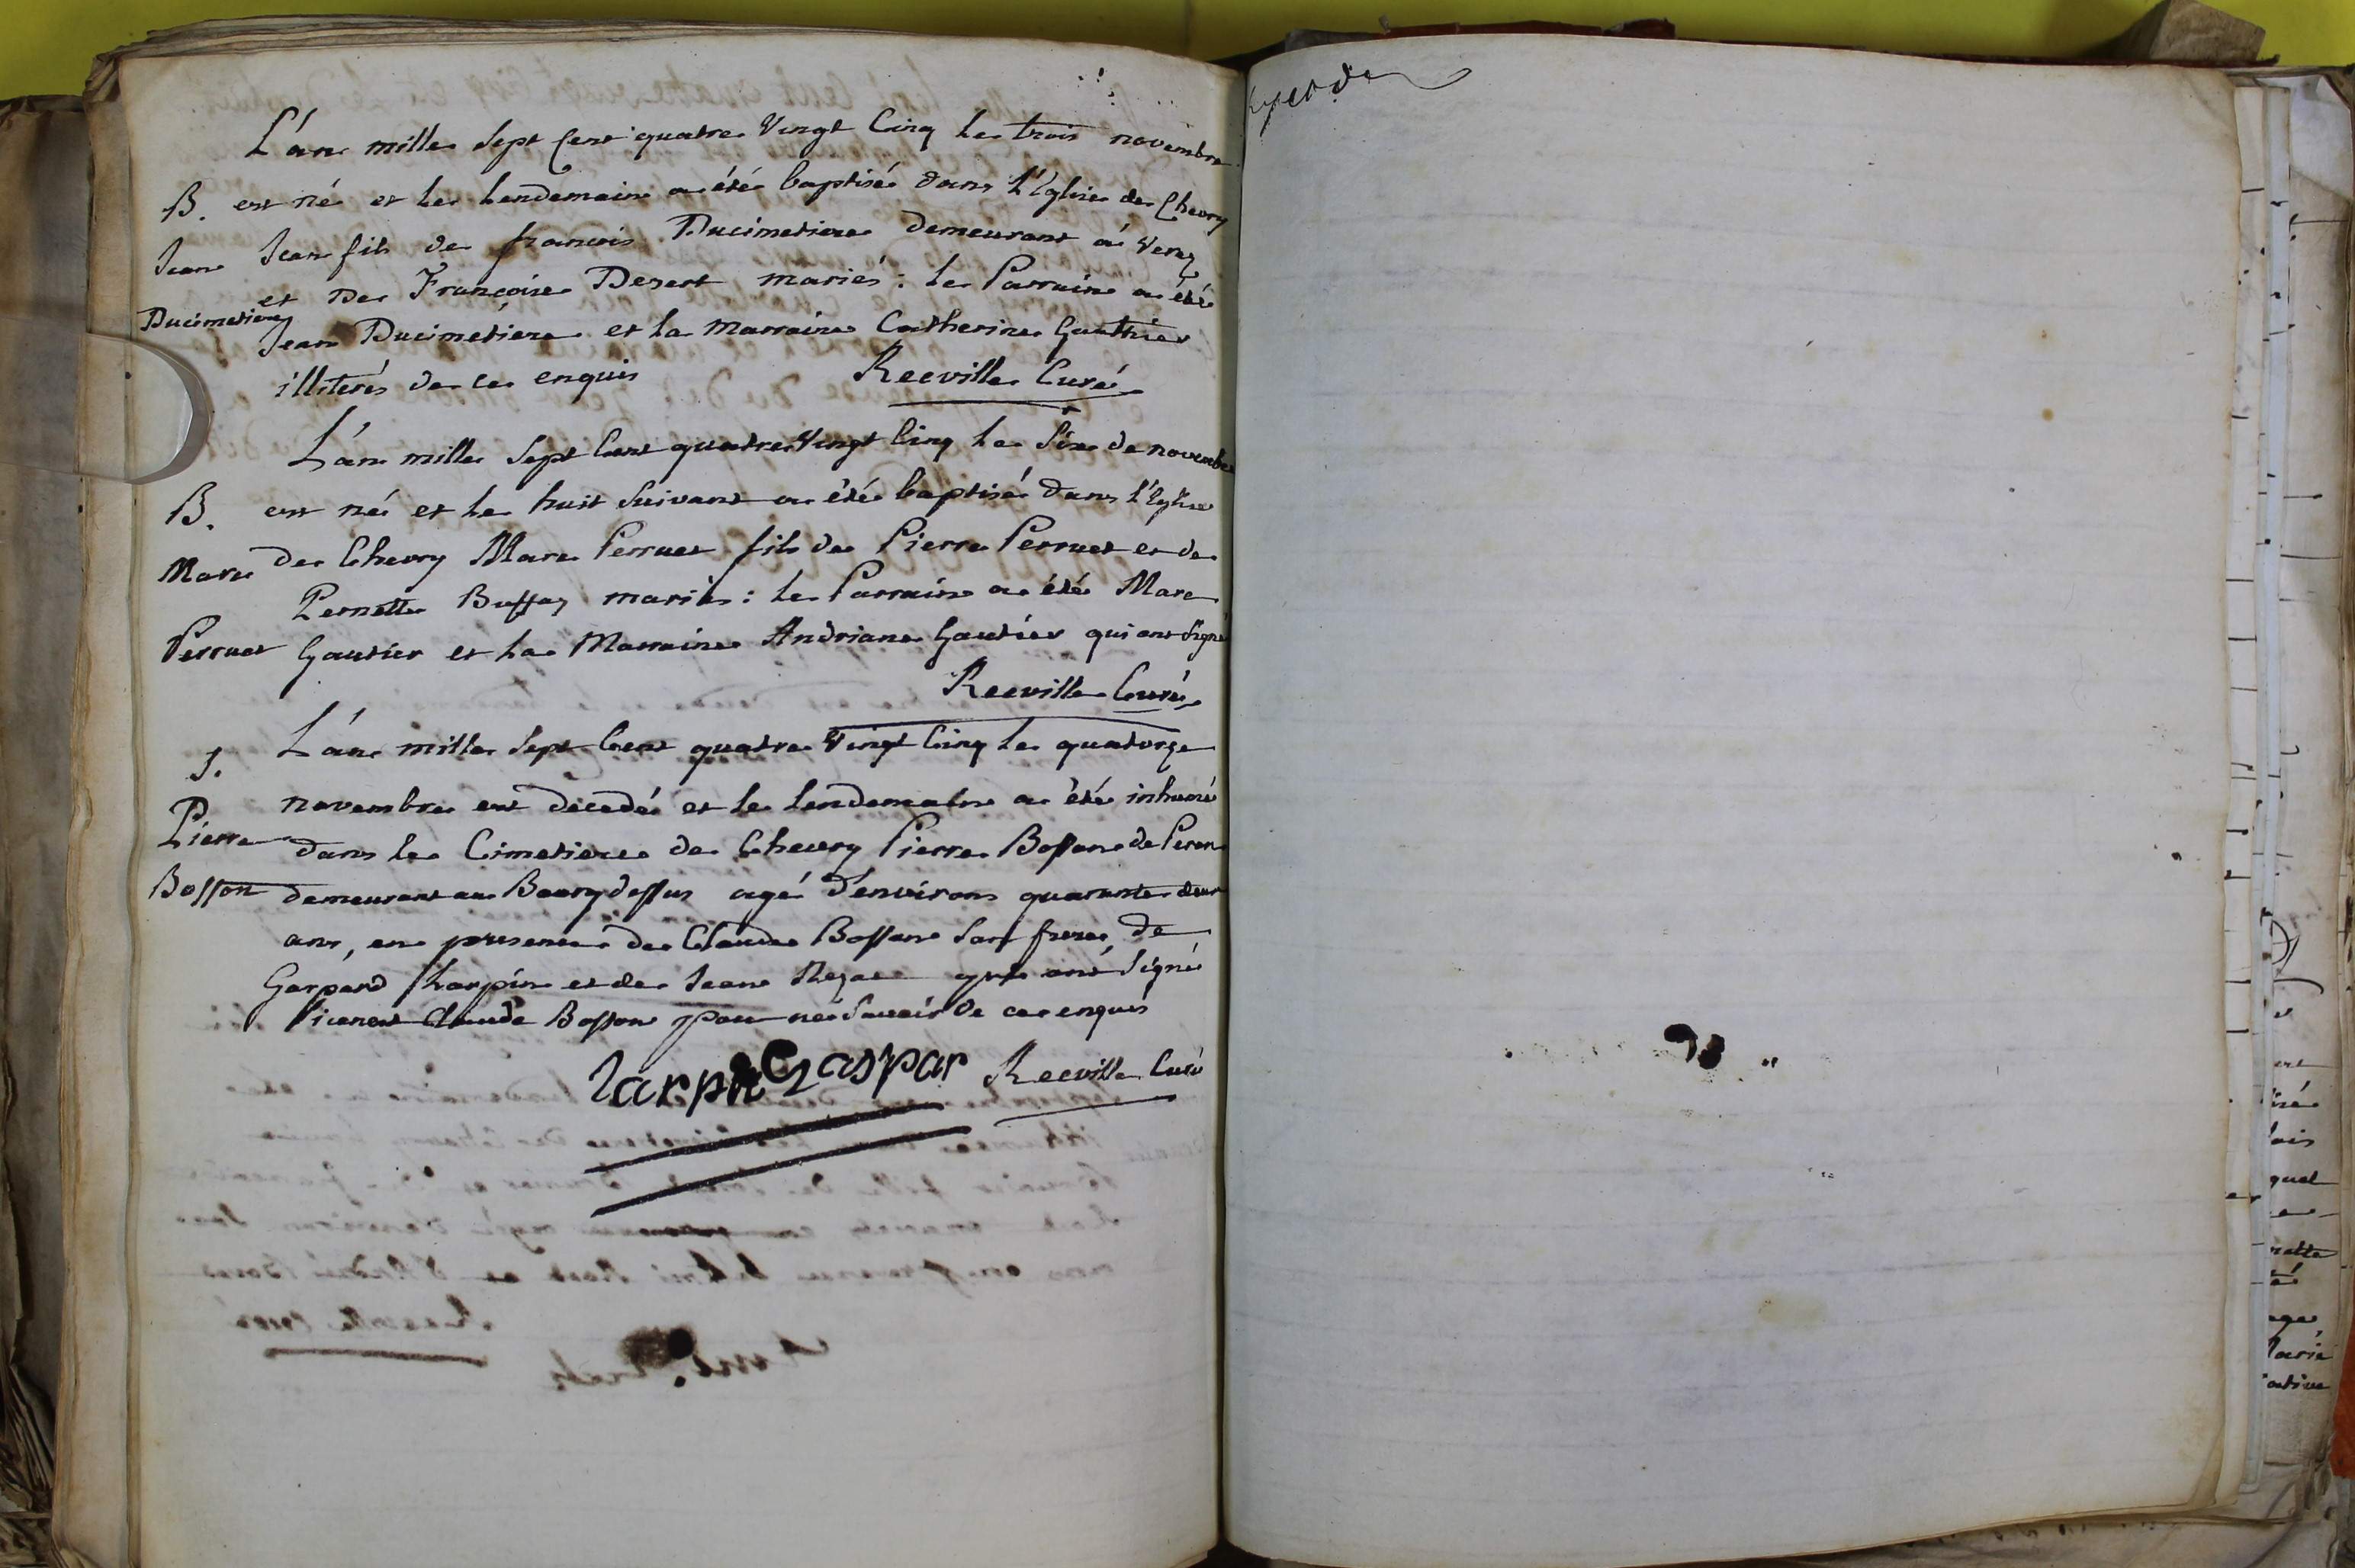 L'an mille Sept Cent quatre Vingt Cinq le trois novembre
B. est né et le lendemain a été baptisé dans l'Eglise de Chevry
Jean Jean fils de francois Ducimetiere Demeurant à Veraz
et De Françoise Desert mariés : le Parrain a été
Ducimetiere Jean Ducimetiere et la Marraine Catherine Gauthier
illiterés de ce enquis Reeville Curé
L'an mille Sept Cent quatre Vingt Cinq le Six de novembre
B. est né et le huit Suivant a été baptisé dans l'Eglise
Marc de Chevry Marc Perruet fils de Pierre Perruet et de
Pernette Buffaz mariés : le Parrain a été Marc
Perruet Gautier et la Marraine Andriane Gautier qui ont Signé
Reeville Curé
L'an mille Sept Cent quatre Vingt Cinq le quatorze
S. novembre est decedé et le lendemain a été inhumé
Pierre dans le Cimetiere de Chevry Pierre Bosson de Peron
Bosson demeurant au Bourg dessus agé d'environs quarante deux
ans, en presence de Claude Bosson Son frere, de
Gaspard Harpin et de Jean qui ont Signé
Claude Bosson pour ne Savoir de ce enquis
Gaspar Reeville Curé